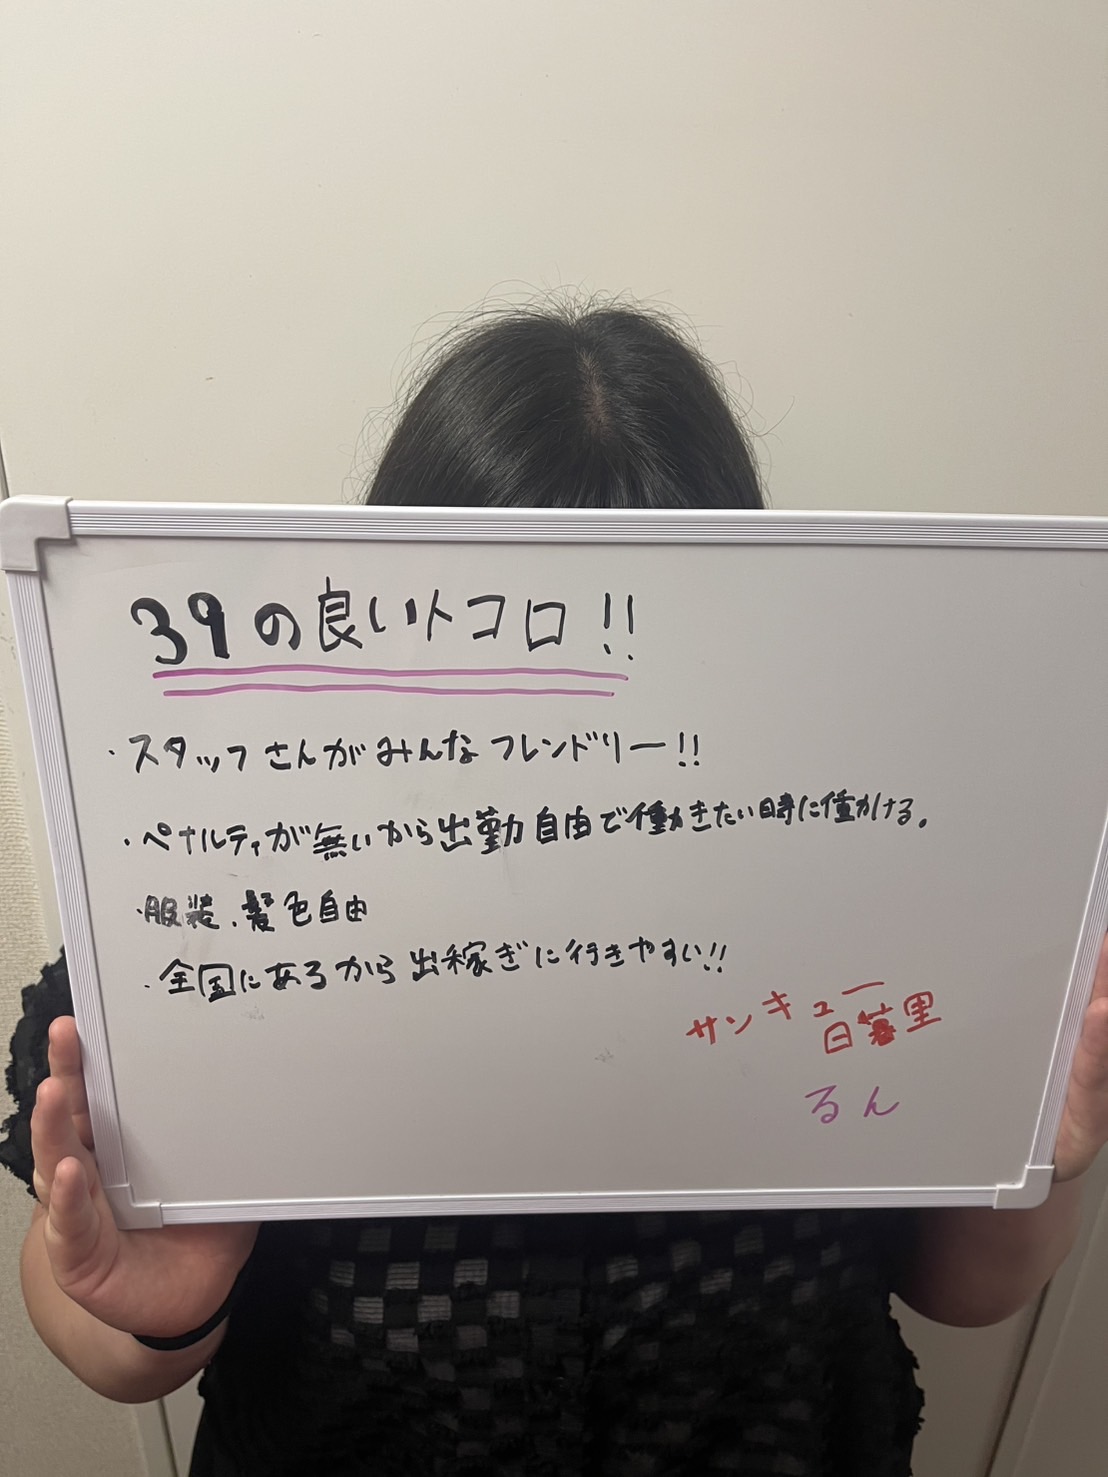 39の良いトコロ!!
・スタッフさんがみんなフレンドリー!!
・ペナルティが無いから出勤自由で働きたい時に働ける。
・服装、髪色自由
・全国にあるから出稼ぎに行きやすい!!
サンキュー
日暮里
るん